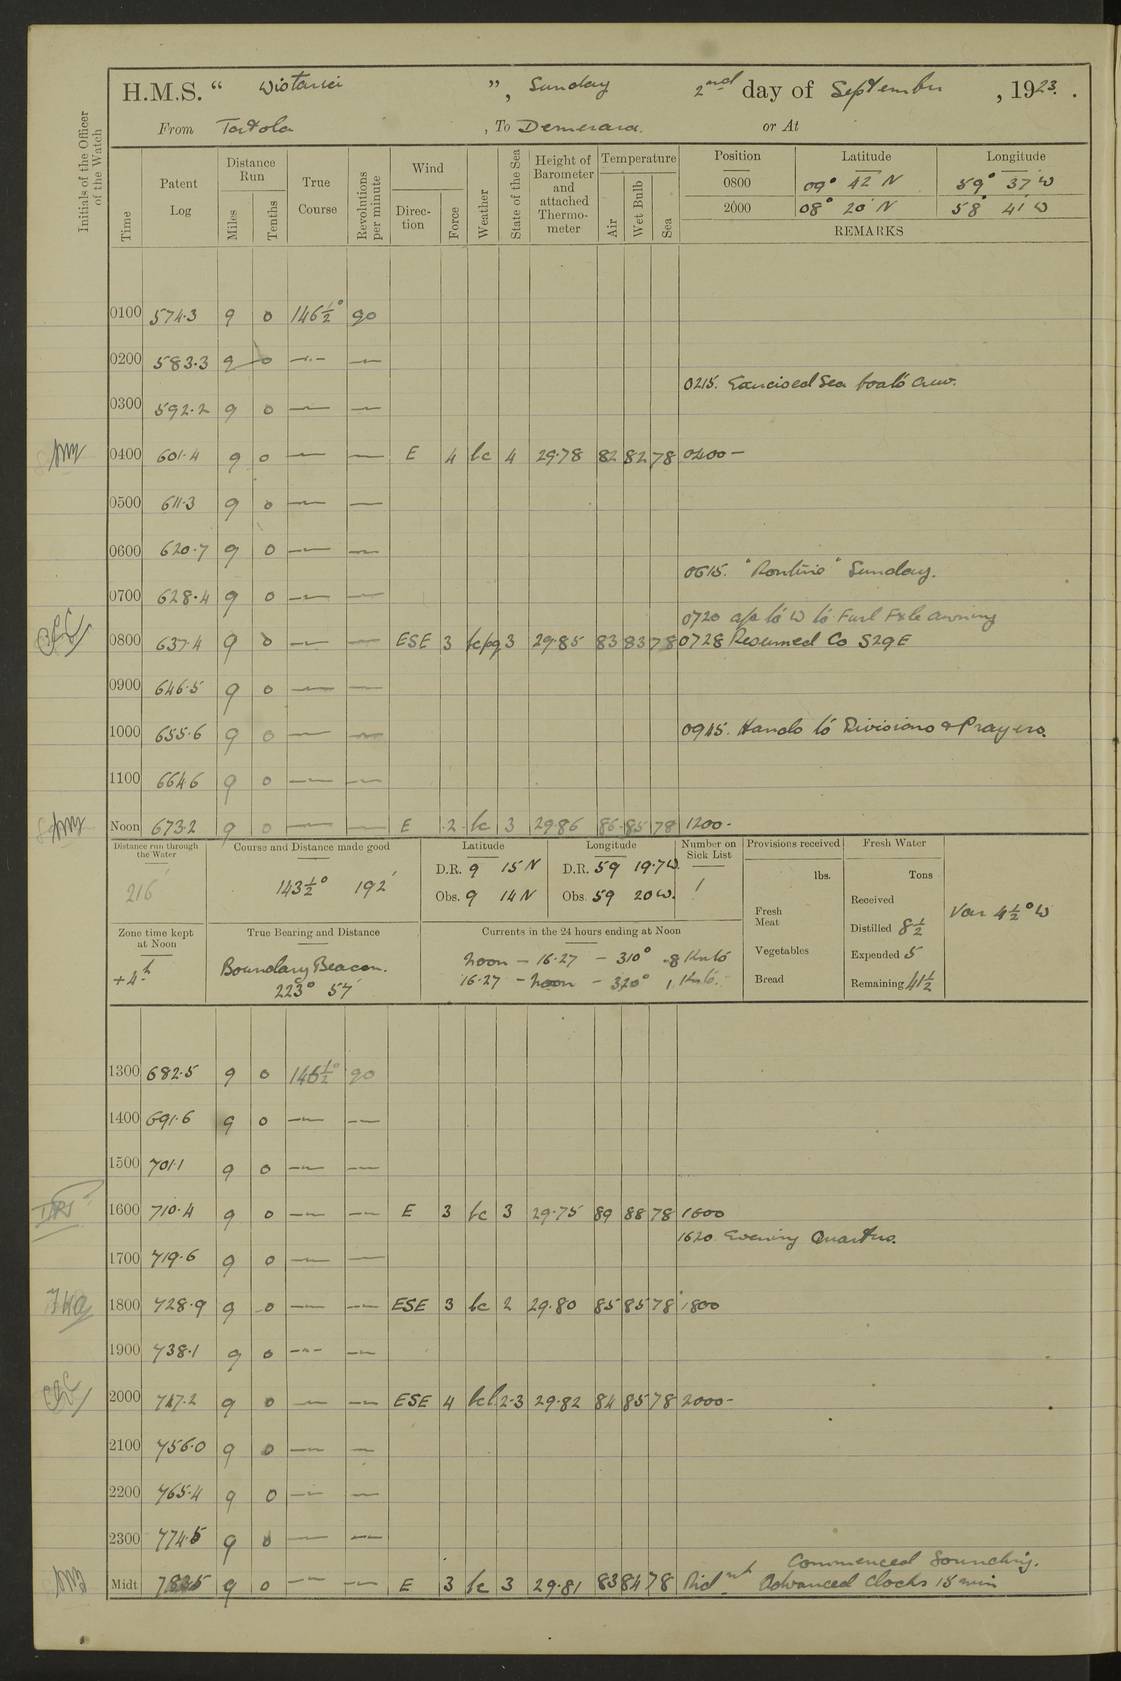 Initials of the Officer of the Watch
H.M.S. “ Wistaria ”, Sunday 2nd day of September, 1923.
From Tortola, To Demerara. or At
Time
Patent Log
Distance Run
Miles
Tenths
True Course
Revolutions per minute
Wind
Direction
Force
Weather
State of the Sea
Height of Barometer and attached Thermometer
Temperature
Air
Wet Bulb
Sea
Position Latitude Longitude
0800 09° 42 N 59° 37' W
2000 08° 20' N 58° 41' W
REMARKS
0100 574.3 9 0 146½° 90
0200 583.3 9 0 — —
0215. Exercised Sea boats crew.
0300 592.2 9 0 — —
0400 601.4 9 0 — — E 4 bc 4 29.78 82 82 78 0400 —
0500 611.3 9 0 — —
0600 620.7 9 0 — —
0615. "Routine" Sunday.
0700 628.4 9 0 — —
0720 a/c to W to Furl Fxle awning
0800 637.4 9 0 — — ESE 3 bcpq 3 29.85 83 83 78 0728 Resumed Co S29E
0900 646.5 9 0 — —
1000 655.6 9 0 — — 0945. Hands to Divisions & Prayers.
1100 664.6 9 0 — —
Noon 673.2 9 0 — — E 2 bc 3 29.86 86 85 78 1200 -
Distance run through the Water
216'
Course and Distance made good
143½° 192'
Latitude
D.R. 9 15 N
Obs. 9 14 N
Longitude
D.R. 59 19.7 W.
Obs. 59 20 W.
Number on Sick List
1
Provisions received
lbs.
Fresh Meat
Vegetables
Bread
Fresh Water
Tons
Received
Distilled 8½
Expended 5
Remaining 41½
Var 4½° W
Zone time kept at Noon
+4h
True Bearing and Distance
Boundary Beacon.
223° 57'
Currents in the 24 hours ending at Noon
Noon — 16.27 — 310° .8 Knts
16.27 — noon — 320° 1 Knts.
1300 682.5 9 0 146½° 90
1400 691.6 9 0 — —
1500 701.1 9 0 — —
1600 710.4 9 0 — — E 3 bc 3 29.75 89 88 78 1600
1620 Evening Quarters.
1700 719.6 9 0 — —
1800 728.9 9 0 — — ESE 3 bc 2 29.80 85 85 78 1800
1900 738.1 9 0 — —
2000 747.2 9 0 — — ESE 4 bcl 2-3 29.82 84 85 78 2000 -
2100 756.0 9 0 — —
2200 765.4 9 0 — —
2300 774.5 9 0 — —
Commenced Sounding.
Midt 9 0 — — E 3 bc 3 29.81 83 84 78 Midnt Advanced Clocks 15 min